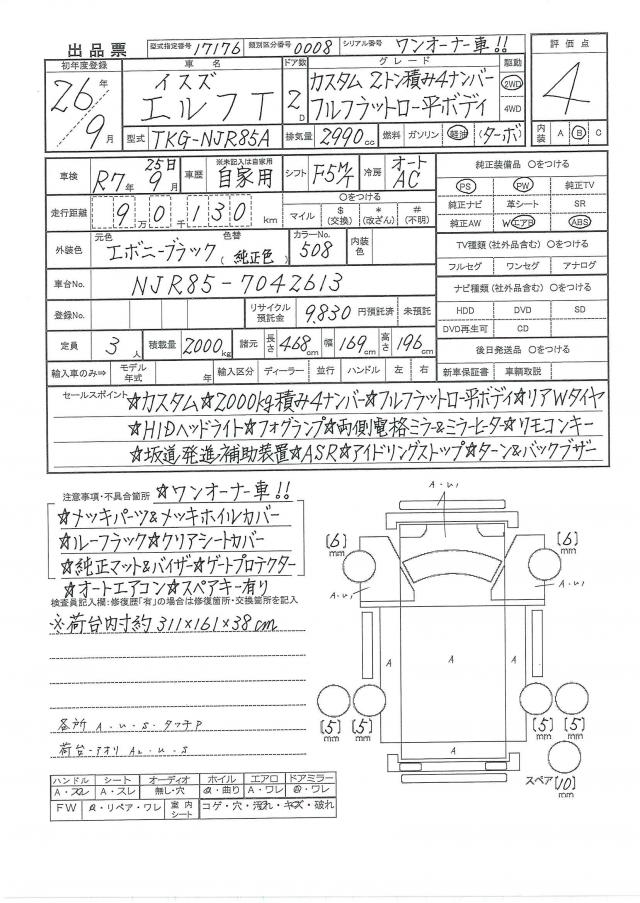 出品票 型式指定番号 17176 類別区分番号 0008 シリアル番号 ワンオーナー車!! 評価点
初年度登録 車名 ドア数 グレード 駆動
26年 9月 イスズ エルフT 2D カスタム 2トン積み4ナンバー フルフラットロー平ボディ 2WD 4WD 4
型式 TKG-NJR85A 排気量 2990cc 燃料 ガソリン 軽油 (ターボ) 内装 A B C
車検 R7年 9月 25日 車歴 ※未記入は自家用 自家用 シフト F5M/T 冷房 オートAC 純正装備品 ○をつける
PS PW 純正TV
走行距離 9万0千130km ○をつける マイル $(交換) *(改ざん) #(不明) 純正ナビ 革シート SR
純正AW WエアB ABS
外装色 元色 エボニーブラック 色替 (純正色) カラーNo. 508 内装色 TV種類(社外品含む)○をつける
フルセグ ワンセグ アナログ
車台No. NJR85-7042613 ナビ種類(社外品含む)○をつける
登録No. リサイクル預託金 9,830円預託済 未預託 HDD DVD SD
DVD再生可 CD
定員 3人 積載量 2000kg 諸元 長さ 468cm 幅 169cm 高さ 196cm 後日発送品 ○をつける
輸入車のみ⇒ モデル年式 年 輸入区分 ディーラー 並行 ハンドル 左 右 新車保証書 車輌取説
セールスポイント ☆カスタム☆2000kg積み4ナンバー☆フルフラットロー平ボディ☆リアWタイヤ
☆HIDヘッドライト☆フォグランプ☆両側電格ミラー&ミラーヒーター☆リモコンキー
☆坂道発進補助装置☆ASR☆アイドリングストップ☆ターン&バックブザー
注意事項・不具合箇所 ☆ワンオーナー車!!
☆メッキパーツ&メッキホイルカバー
☆ルーフラック☆クリアシートカバー
☆純正マット&バイザー☆ゲートプロテクター
☆オートエアコン☆スペアキー有り
検査員記入欄:修復歴「有」の場合は修復箇所・交換箇所を記入
※荷台内寸約311×161×38cm
各所 A・U・S・タッチP
荷台-アオリ A2・U・S
A・U1
[6]mm [6]mm
A・U1 A・U1
A A A
[5]mm [5]mm [5]mm [5]mm
A
スペア [10]mm
ハンドル シート オーディオ ホイル エアロ ドアミラー
A・スレ A・スレ 無し・穴 A・曲り A・ワレ A・ワレ
FW A・リペア・ワレ 室内シート コゲ・穴・汚れ・キズ・破れ